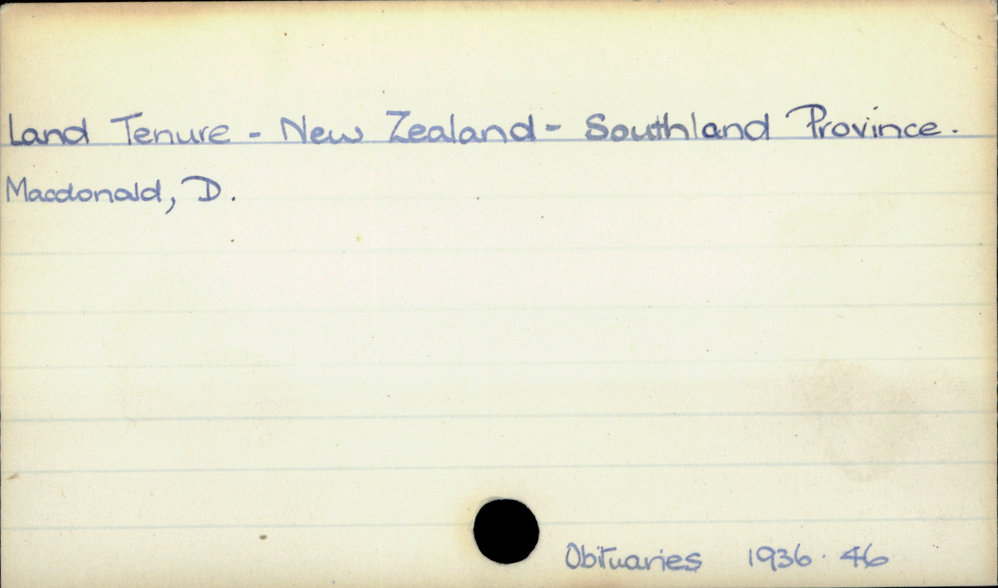 Land Tenure - New Zealand - Southland Province.
Macdonald, D.
Obituaries 1936-46